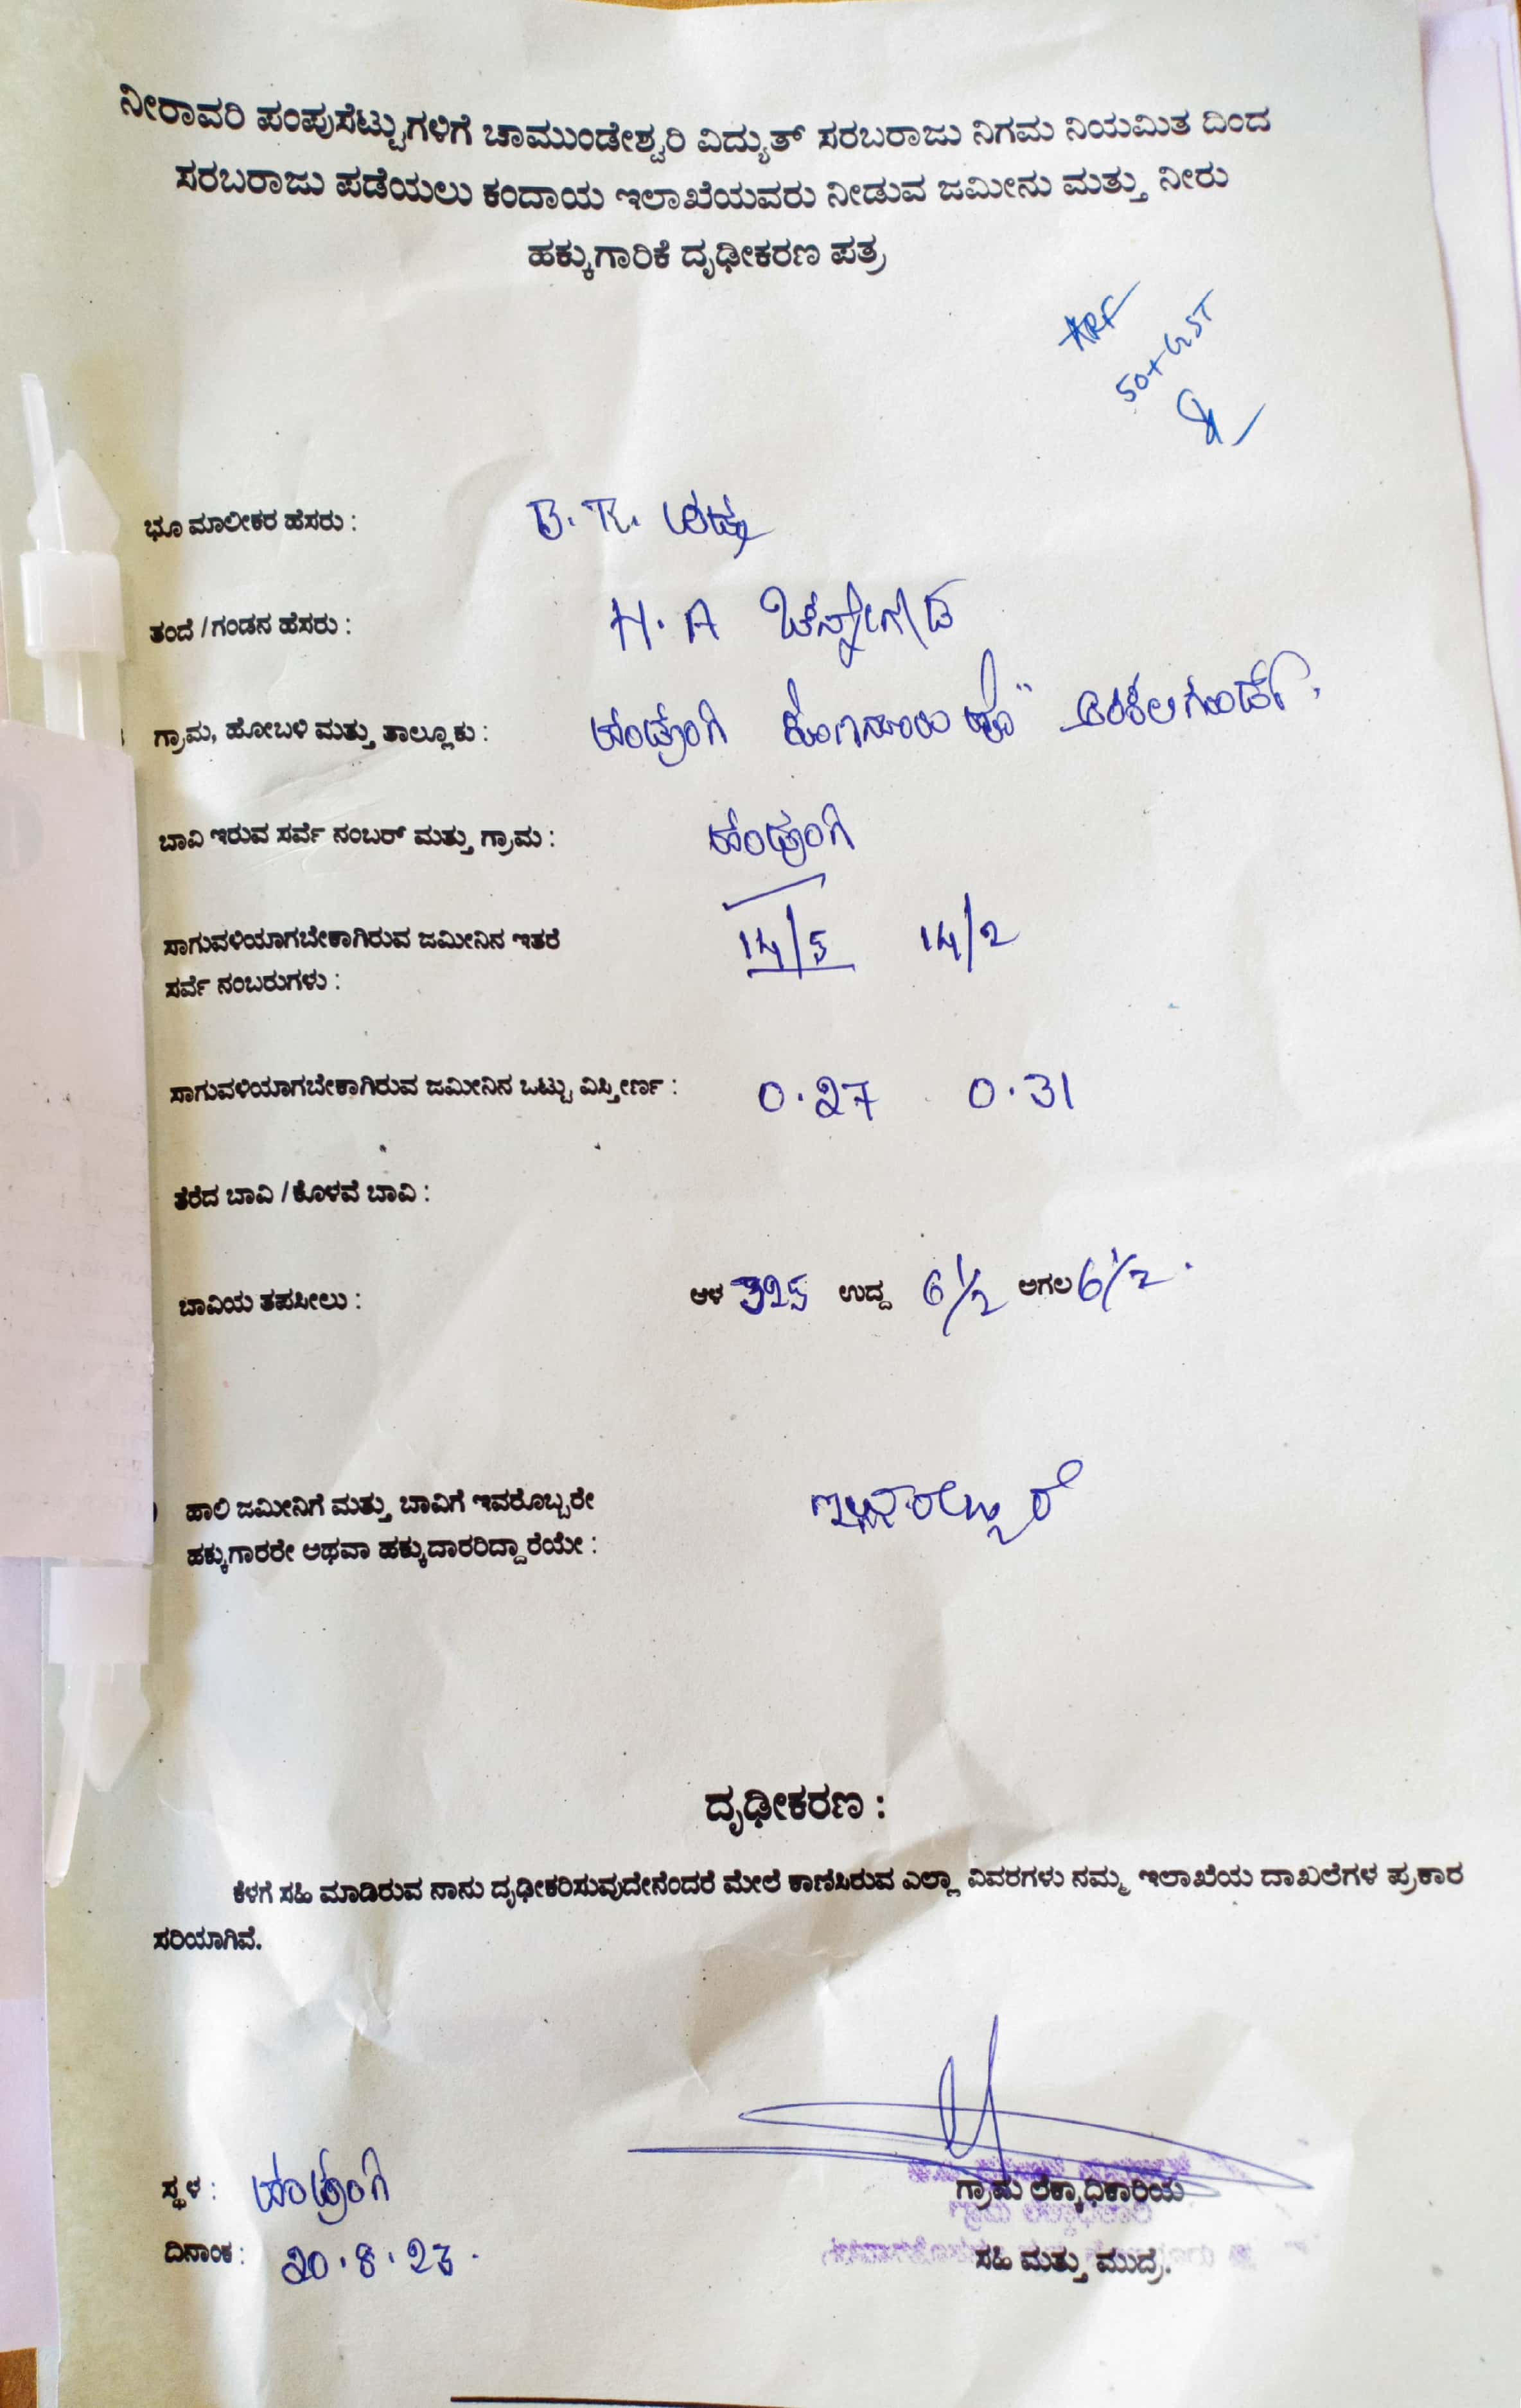 ನೀರಾವರಿ ಪಂಪುಸೆಟ್ಟುಗಳಿಗೆ ಚಾಮುಂಡೇಶ್ವರಿ ವಿದ್ಯುತ್ ಸರಬರಾಜು ನಿಗಮ ನಿಯಮಿತ ದಿಂದ
ಸರಬರಾಜು ಪಡೆಯಲು ಕಂದಾಯ ಇಲಾಖೆಯವರು ನೀಡುವ ಜಮೀನು ಮತ್ತು ನೀರು
ಹಕ್ಕುಗಾರಿಕೆ ದೃಢೀಕರಣ ಪತ್ರ
ARF
50+GST
ಭೂ ಮಾಲೀಕರ ಹೆಸರು : B. R.
ತಂದೆ /ಗಂಡನ ಹೆಸರು : H. A ಚನ್ನೇಗೌಡ
ಗ್ರಾಮ, ಹೋಬಳಿ ಮತ್ತು ತಾಲ್ಲೂಕು : ಹಂಡ್ರಂಗಿ ಕೊಣನೂರು ಹೊ" ಅರಕಲಗೂಡ್.
ಬಾವಿ ಇರುವ ಸರ್ವೆ ನಂಬರ್ ಮತ್ತು ಗ್ರಾಮ : ಹಂಡ್ರಂಗಿ
ಸಾಗುವಳಿಯಾಗಬೇಕಾಗಿರುವ ಜಮೀನಿನ ಇತರೆ 14/5 14/2
ಸರ್ವೆ ನಂಬರುಗಳು :
ಸಾಗುವಳಿಯಾಗಬೇಕಾಗಿರುವ ಜಮೀನಿನ ಒಟ್ಟು ವಿಸ್ತೀರ್ಣ : 0.27 0.31
ತೆರೆದ ಬಾವಿ /ಕೊಳವೆ ಬಾವಿ :
ಬಾವಿಯ ತಪಸೀಲು : ಆಳ 325 ಉದ್ದ 6 1/2 ಅಗಲ 6 1/2 .
ಹಾಲಿ ಜಮೀನಿಗೆ ಮತ್ತು ಬಾವಿಗೆ ಇವರೊಬ್ಬರೇ ಇವರೊಬ್ಬರೆ
ಹಕ್ಕುಗಾರರೇ ಅಥವಾ ಹಕ್ಕುದಾರರಿದ್ದಾರೆಯೇ :
ದೃಢೀಕರಣ :
ಕೆಳಗೆ ಸಹಿ ಮಾಡಿರುವ ನಾನು ದೃಢೀಕರಿಸುವುದೇನೆಂದರೆ ಮೇಲೆ ಕಾಣಿಸಿರುವ ಎಲ್ಲಾ ವಿವರಗಳು ನಮ್ಮ ಇಲಾಖೆಯ ದಾಖಲೆಗಳ ಪ್ರಕಾರ
ಸರಿಯಾಗಿವೆ.
ಸ್ಥಳ : ಹಂಡ್ರಂಗಿ
ಗ್ರಾಮ ಲೆಕ್ಕಾಧಿಕಾರಿಯ
ದಿನಾಂಕ : 20.8.23.
ಸಹಿ ಮತ್ತು ಮುದ್ರೆ.